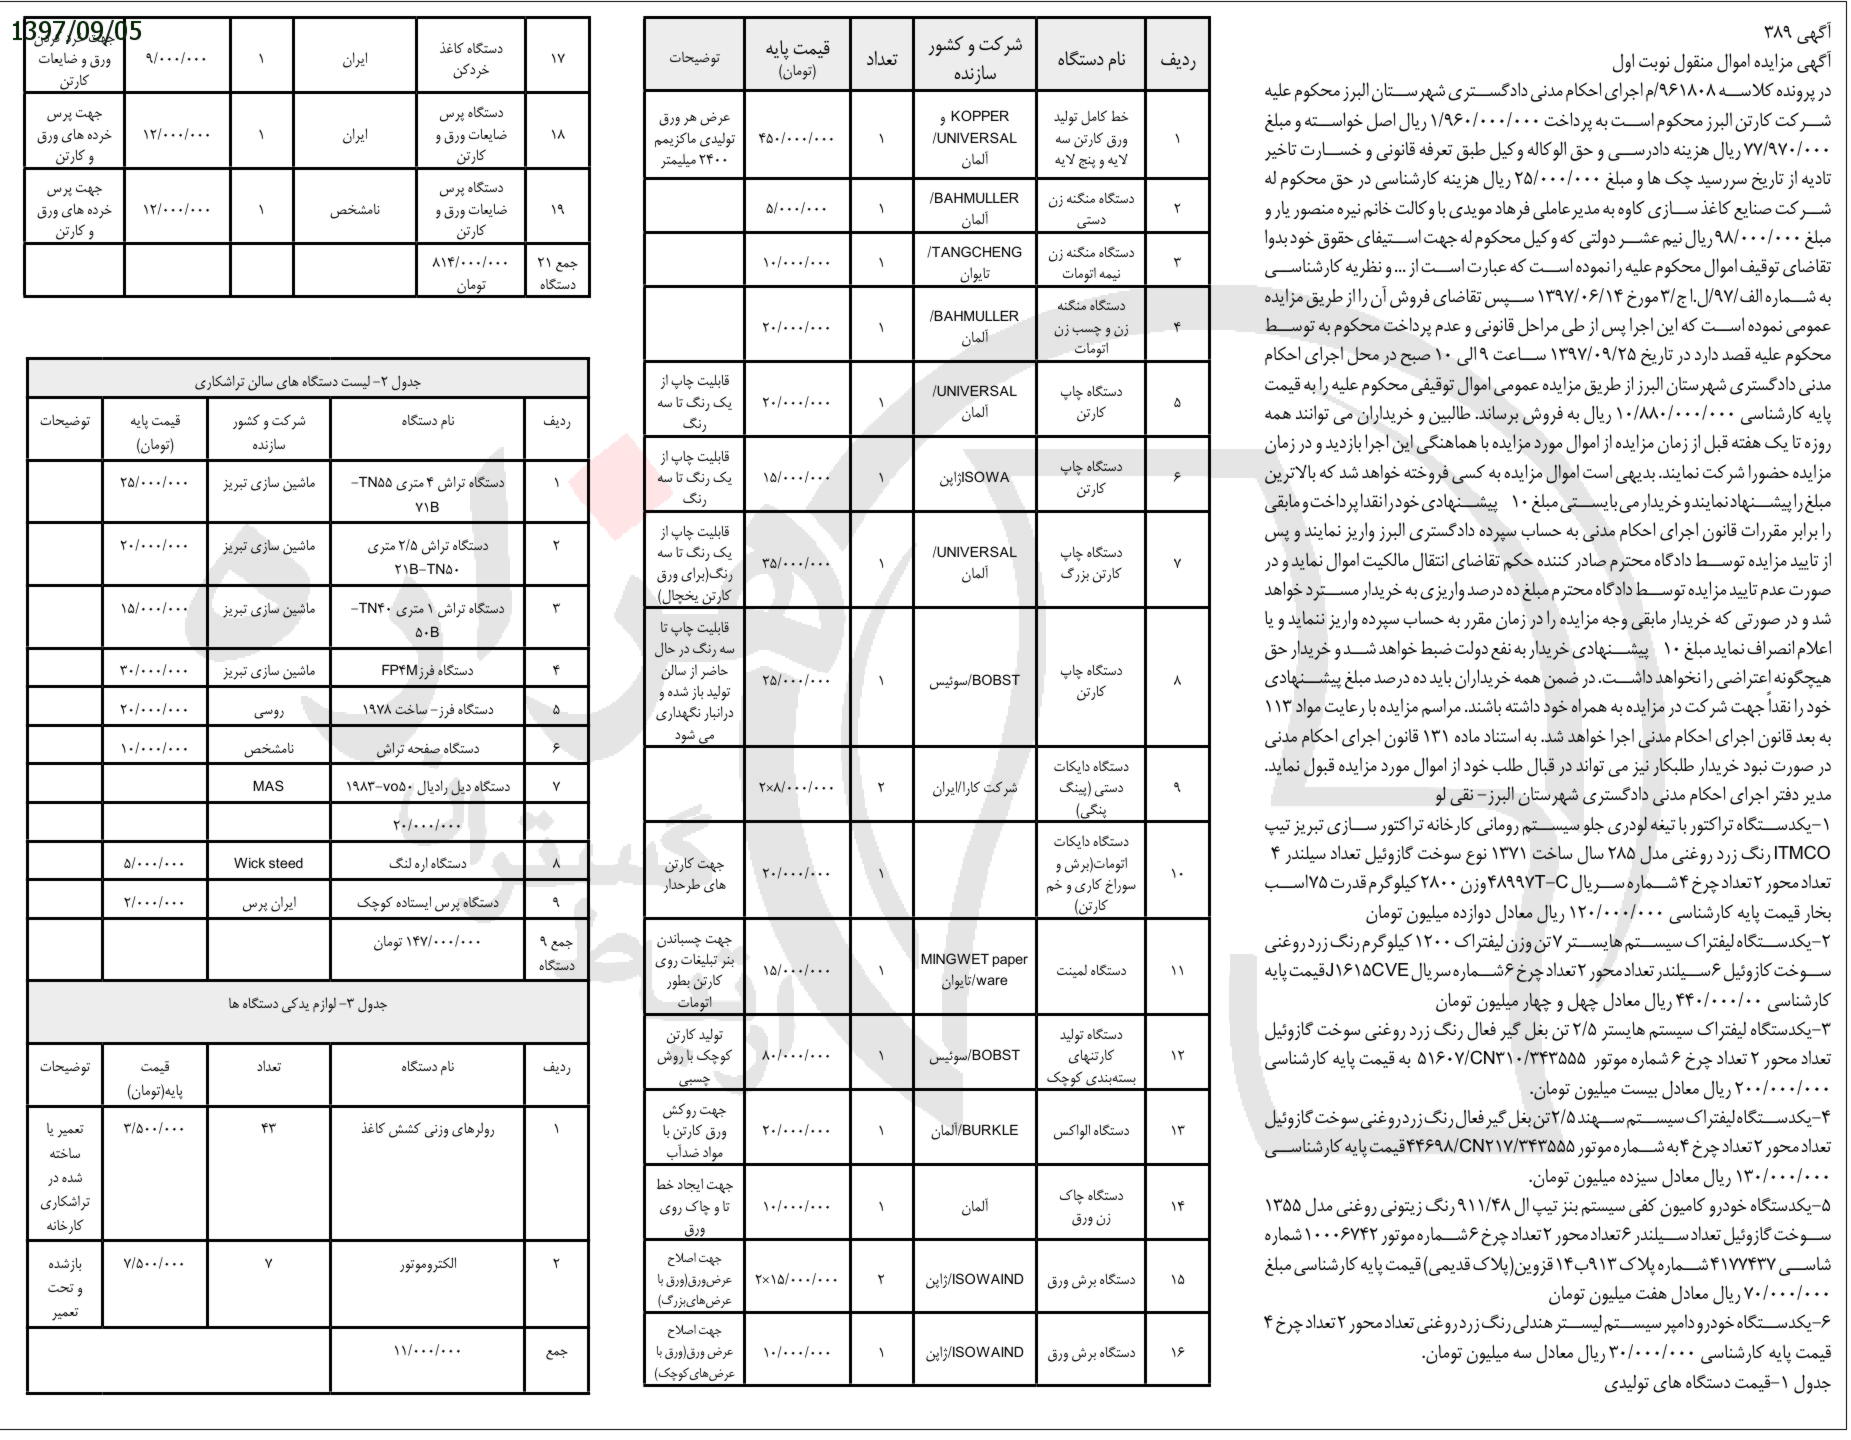 1397/09/05
آگهی ۳۸۹
آگهی مزایده اموال منقول نوبت اول
در پرونده کلاسه ۹۶۱۸۰۸/م اجرای احکام مدنی دادگستری شهرستان البرز محکوم علیه
شرکت کارتن البرز محکوم است به پرداخت ۱/۹۶۰/۰۰۰/۰۰۰ ریال اصل خواسته و مبلغ
۷۷/۹۷۰/۰۰۰ ریال هزینه دادرسی و حق الوکاله وکیل طبق تعرفه قانونی و خسارت تاخیر
تادیه از تاریخ سررسید چک ها و مبلغ ۲۵/۰۰۰/۰۰۰ ریال هزینه کارشناسی در حق محکوم له
شرکت صنایع کاغذ سازی کاوه به مدیرعاملی فرهاد مویدی با وکالت خانم نیره منصور یار و
مبلغ ۹۸/۰۰۰/۰۰۰ ریال نیم عشر دولتی که وکیل محکوم له جهت استیفای حقوق خود بدوا
تقاضای توقیف اموال محکوم علیه را نموده است که عبارت است از ... و نظریه کارشناسی
به شماره الف/۹۷/ل.ا ج/۳ مورخ ۱۳۹۷/۰۶/۱۴ سپس تقاضای فروش آن را از طریق مزایده
عمومی نموده است که این اجرا پس از طی مراحل قانونی و عدم پرداخت محکوم به توسط
محکوم علیه قصد دارد در تاریخ ۱۳۹۷/۰۹/۲۵ ساعت ۹ الی ۱۰ صبح در محل اجرای احکام
مدنی دادگستری شهرستان البرز از طریق مزایده عمومی اموال توقیفی محکوم علیه را به قیمت
پایه کارشناسی ۱۰/۸۸۰/۰۰۰/۰۰۰ ریال به فروش برساند. طالبین و خریداران می توانند همه
روزه تا یک هفته قبل از زمان مزایده از اموال مورد مزایده با هماهنگی این اجرا بازدید و در زمان
مزایده حضورا شرکت نمایند. بدیهی است اموال مزایده به کسی فروخته خواهد شد که بالاترین
مبلغ را پیشنهاد نمایند و خریدار می بایستی مبلغ ۱۰ پیشنهادی خود را نقدا پرداخت و مابقی
را برابر مقررات قانون اجرای احکام مدنی به حساب سپرده دادگستری البرز واریز نمایند و پس
از تایید مزایده توسط دادگاه محترم صادر کننده حکم تقاضای انتقال مالکیت اموال نماید و در
صورت عدم تایید مزایده توسط دادگاه محترم مبلغ ده درصد واریزی به خریدار مسترد خواهد
شد و در صورتی که خریدار مابقی وجه مزایده را در زمان مقرر به حساب سپرده واریز ننماید و یا
اعلام انصراف نماید مبلغ ۱۰ پیشنهادی خریدار به نفع دولت ضبط خواهد شد و خریدار حق
هیچگونه اعتراضی را نخواهد داشت. در ضمن همه خریداران باید ده درصد مبلغ پیشنهادی
خود را نقداً جهت شرکت در مزایده به همراه خود داشته باشند. مراسم مزایده با رعایت مواد ۱۱۳
به بعد قانون اجرای احکام مدنی اجرا خواهد شد. به استناد ماده ۱۳۱ قانون اجرای احکام مدنی
در صورت نبود خریدار طلبکار نیز می تواند در قبال طلب خود از اموال مورد مزایده قبول نماید.
مدیر دفتر اجرای احکام مدنی دادگستری شهرستان البرز- نقی لو
۱-یکدستگاه تراکتور با تیغه لودری جلو سیستم رومانی کارخانه تراکتور سازی تبریز تیپ
ITMCO رنگ زرد روغنی مدل ۲۸۵ سال ساخت ۱۳۷۱ نوع سوخت گازوئیل تعداد سیلندر ۴
تعداد محور ۲ تعداد چرخ ۴ شماره سریال ۴۸۹۹۷T-C وزن ۲۸۰۰ کیلوگرم قدرت ۷۵ اسب
بخار قیمت پایه کارشناسی ۱۲۰/۰۰۰/۰۰۰ ریال معادل دوازده میلیون تومان
۲-یکدستگاه لیفتراک سیستم هایستر ۷ تن وزن لیفتراک ۱۲۰۰ کیلوگرم رنگ زرد روغنی
سوخت کازوئیل ۶ سیلندر تعداد محور ۲ تعداد چرخ ۶ شماره سریال J۱۶۱۵CVE قیمت پایه
کارشناسی ۴۴۰/۰۰۰/۰۰ ریال معادل چهل و چهار میلیون تومان
۳-یکدستگاه لیفتراک سیستم هایستر ۲/۵ تن بغل گیر فعال رنگ زرد روغنی سوخت گازوئیل
تعداد محور ۲ تعداد چرخ ۶ شماره موتور ۵۱۶۰۷/CN۳۱۰/۳۴۳۵۵۵ به قیمت پایه کارشناسی
۲۰۰/۰۰۰/۰۰۰ ریال معادل بیست میلیون تومان.
۴-یکدستگاه لیفتراک سیستم سهند ۲/۵ تن بغل گیر فعال رنگ زرد روغنی سوخت گازوئیل
تعداد محور ۲ تعداد چرخ ۴ به شماره موتور ۴۴۶۹۸/CN۲۱۷/۳۴۳۵۵۵ قیمت پایه کارشناسی
۱۳۰/۰۰۰/۰۰۰ ریال معادل سیزده میلیون تومان.
۵-یکدستگاه خودرو کامیون کفی سیستم بنز تیپ ال ۹۱۱/۴۸ رنگ زیتونی روغنی مدل ۱۳۵۵
سوخت گازوئیل تعداد سیلندر ۶ تعداد محور ۲ تعداد چرخ ۶ شماره موتور ۱۰۰۰۶۷۴۲ شماره
شاسی ۴۱۷۷۴۳۷ شماره پلاک ۹۱۳ب۱۴ قزوین(پلاک قدیمی) قیمت پایه کارشناسی مبلغ
۷۰/۰۰۰/۰۰۰ ریال معادل هفت میلیون تومان
۶-یکدستگاه خودرو دامپر سیستم لیستر هندلی رنگ زرد روغنی تعداد محور ۲ تعداد چرخ ۴
قیمت پایه کارشناسی ۳۰/۰۰۰/۰۰۰ ریال معادل سه میلیون تومان.
جدول ۱-قیمت دستگاه های تولیدی
ردیف نام دستگاه شرکت و کشور سازنده تعداد قیمت پایه (تومان) توضیحات
۱ خط کامل تولید ورق کارتن سه لایه و پنج لایه KOPPER و UNIVERSAL/ آلمان ۱ ۴۵۰/۰۰۰/۰۰۰ عرض هر ورق تولیدی ماکزیمم ۲۴۰۰ میلیمتر
۲ دستگاه منگنه زن دستی BAHMULLER/ آلمان ۱ ۵/۰۰۰/۰۰۰
۳ دستگاه منگنه زن نیمه اتومات TANGCHENG/ تایوان ۱ ۱۰/۰۰۰/۰۰۰
۴ دستگاه منگنه زن و چسب زن اتومات BAHMULLER/ آلمان ۱ ۲۰/۰۰۰/۰۰۰
۵ دستگاه چاپ کارتن UNIVERSAL/ آلمان ۱ ۲۰/۰۰۰/۰۰۰ قابلیت چاپ از یک رنگ تا سه رنگ
۶ دستگاه چاپ کارتن ISOWAژاپن ۱ ۱۵/۰۰۰/۰۰۰ قابلیت چاپ از یک رنگ تا سه رنگ
۷ دستگاه چاپ کارتن بزرگ UNIVERSAL/ آلمان ۱ ۳۵/۰۰۰/۰۰۰ قابلیت چاپ از یک رنگ تا سه رنگ(برای ورق کارتن یخچال)
۸ دستگاه چاپ کارتن BOBST/سوئیس ۱ ۲۵/۰۰۰/۰۰۰ قابلیت چاپ تا سه رنگ در حال حاضر از سالن تولید باز شده و درانبار نگهداری می شود
۹ دستگاه دایکات دستی (پینگ پنگی) شرکت کارا/ایران ۲ ۲×۸/۰۰۰/۰۰۰
۱۰ دستگاه دایکات اتومات(برش و سوراخ کاری و خم کارتن) ۱ ۲۰/۰۰۰/۰۰۰ جهت کارتن های طرحدار
۱۱ دستگاه لمینت MINGWET paper ware/تایوان ۱ ۱۵/۰۰۰/۰۰۰ جهت چسباندن بنر تبلیغات روی کارتن بطور اتومات
۱۲ دستگاه تولید کارتنهای بسته‌بندی کوچک BOBST/سوئیس ۱ ۸۰/۰۰۰/۰۰۰ تولید کارتن کوچک با روش چسبی
۱۳ دستگاه الواکس BURKLE/آلمان ۱ ۲۰/۰۰۰/۰۰۰ جهت روکش ورق کارتن با مواد ضدآب
۱۴ دستگاه چاک زن ورق آلمان ۱ ۱۰/۰۰۰/۰۰۰ جهت ایجاد خط تا و چاک روی ورق
۱۵ دستگاه برش ورق ISOWAIND/ژاپن ۲ ۲×۱۵/۰۰۰/۰۰۰ جهت اصلاح عرض‌ورق(ورق با عرض‌های‌بزرگ)
۱۶ دستگاه برش ورق ISOWAIND/ژاپن ۱ ۱۰/۰۰۰/۰۰۰ جهت اصلاح عرض ورق(ورق با عرض‌های‌کوچک)
۱۷ دستگاه کاغذ خردکن ایران ۱ ۹/۰۰۰/۰۰۰ جهت خرد کردن ورق و ضایعات کارتن
۱۸ دستگاه پرس ضایعات ورق و کارتن ایران ۱ ۱۲/۰۰۰/۰۰۰ جهت پرس خرده های ورق و کارتن
۱۹ دستگاه پرس ضایعات ورق و کارتن نامشخص ۱ ۱۲/۰۰۰/۰۰۰ جهت پرس خرده های ورق و کارتن
جمع ۲۱ دستگاه ۸۱۴/۰۰۰/۰۰۰ تومان
جدول ۲- لیست دستگاه های سالن تراشکاری
ردیف نام دستگاه شرکت و کشور سازنده قیمت پایه (تومان) توضیحات
۱ دستگاه تراش ۴ متری TN۵۵-۷۱B ماشین سازی تبریز ۲۵/۰۰۰/۰۰۰
۲ دستگاه تراش ۲/۵ متری ۲۱B-TN۵۰ ماشین سازی تبریز ۲۰/۰۰۰/۰۰۰
۳ دستگاه تراش ۱ متری TN۴۰-۵۰B ماشین سازی تبریز ۱۵/۰۰۰/۰۰۰
۴ دستگاه فرز FP۴M ماشین سازی تبریز ۳۰/۰۰۰/۰۰۰
۵ دستگاه فرز- ساخت ۱۹۷۸ روسی ۲۰/۰۰۰/۰۰۰
۶ دستگاه صفحه تراش نامشخص ۱۰/۰۰۰/۰۰۰
۷ دستگاه دیل رادیال vo۵۰-۱۹۸۳ MAS
۲۰/۰۰۰/۰۰۰
۸ دستگاه اره لنگ Wick steed ۵/۰۰۰/۰۰۰
۹ دستگاه پرس ایستاده کوچک ایران پرس ۲/۰۰۰/۰۰۰
جمع ۹ دستگاه ۱۴۷/۰۰۰/۰۰۰ تومان
جدول ۳- لوازم یدکی دستگاه ها
ردیف نام دستگاه تعداد قیمت پایه(تومان) توضیحات
۱ رولرهای وزنی کشش کاغذ ۴۳ ۳/۵۰۰/۰۰۰ تعمیر یا ساخته شده در تراشکاری کارخانه
۲ الکتروموتور ۷ ۷/۵۰۰/۰۰۰ بازشده و تحت تعمیر
جمع ۱۱/۰۰۰/۰۰۰